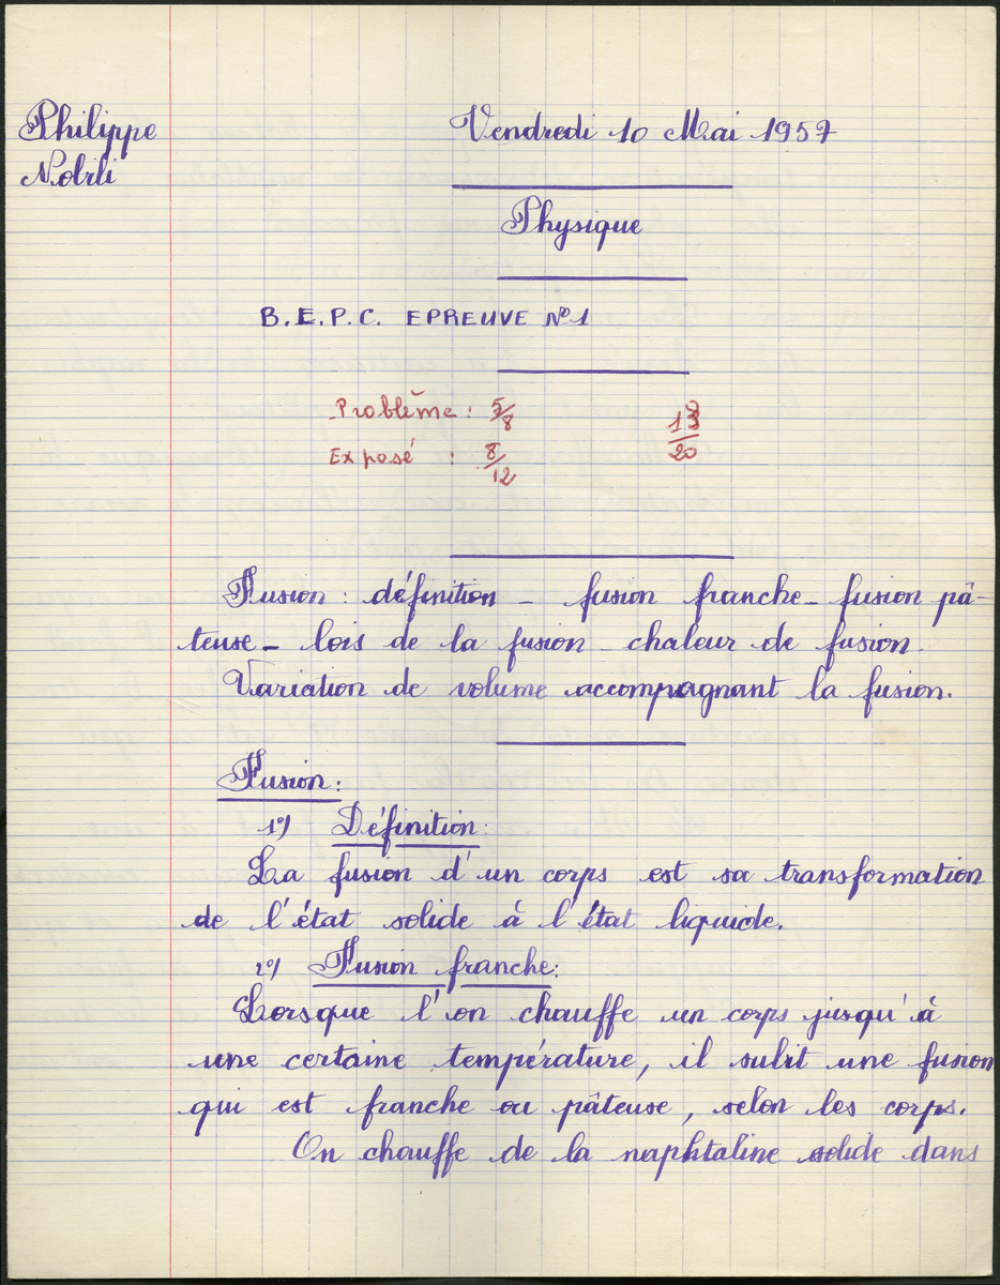 Philippe
Nobili
Vendredi 10 Mai 1957
Physique
B.E.P.C. EPREUVE N°1
Problème : 5/8
Exposé : 8/12
13/20
Fusion : définition - fusion franche - fusion pâ-
teuse - lois de la fusion - chaleur de fusion.
Variation de volume accompagnant la fusion.
Fusion :
1°/ Définition :
La fusion d'un corps est sa transformation
de l'état solide à l'état liquide.
2°/ Fusion franche :
Lorsque l'on chauffe un corps jusqu'à
une certaine température, il subit une fusion
qui est franche ou pâteuse, selon les corps.
On chauffe de la naphtaline solide dans